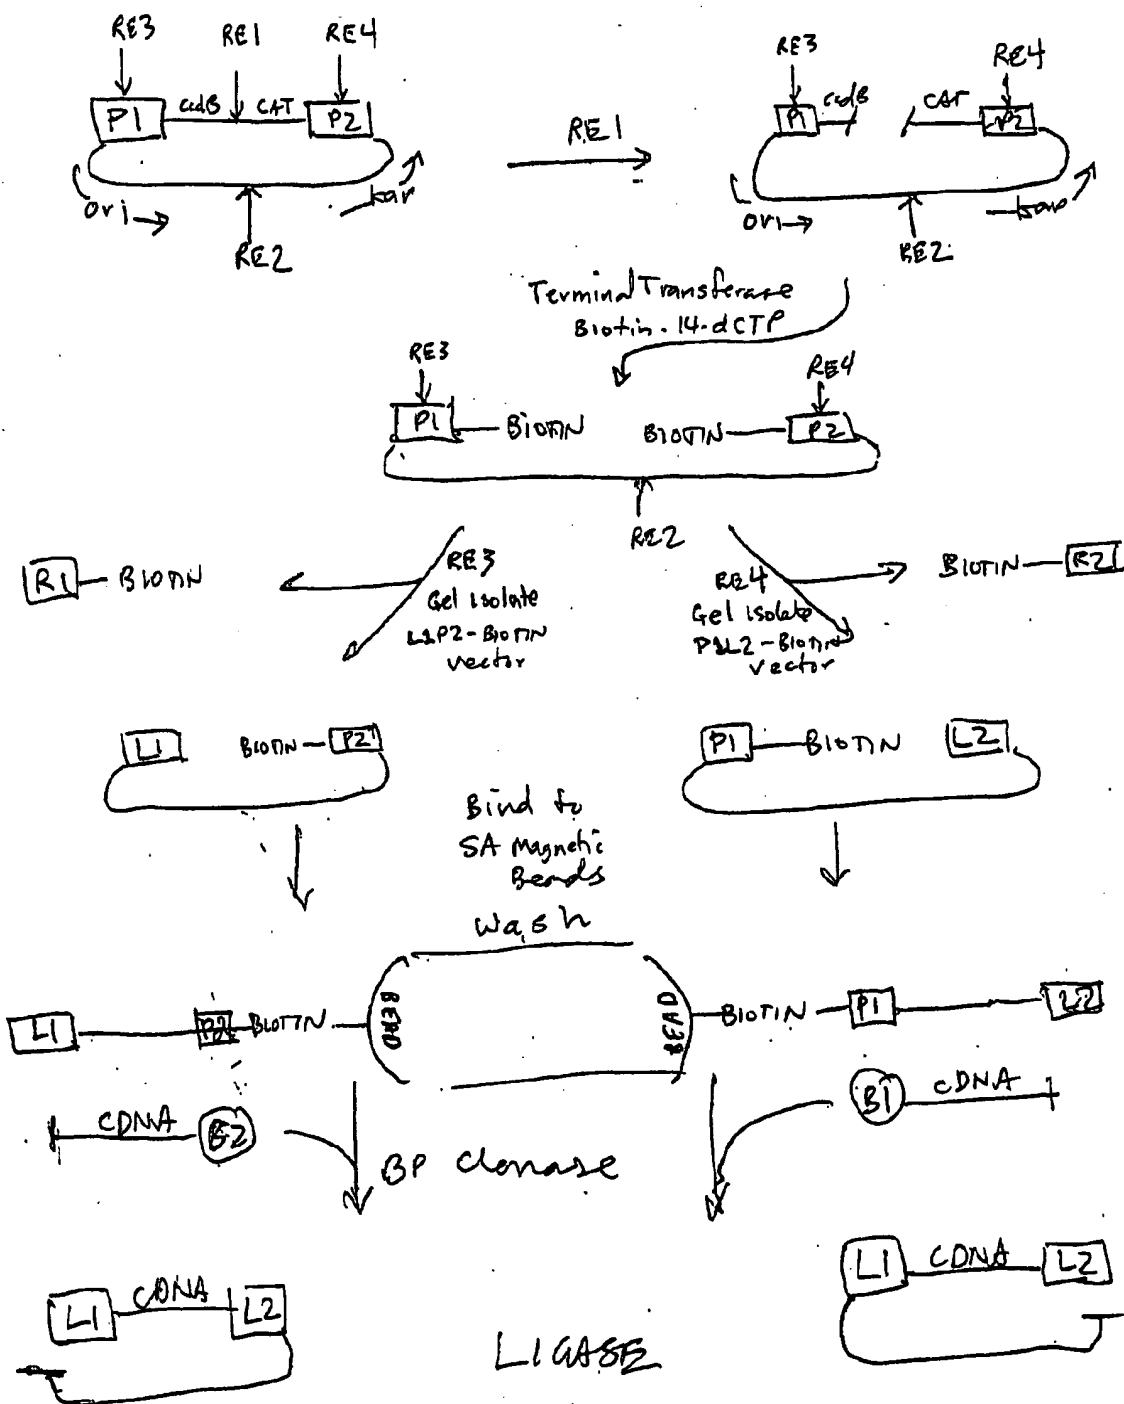 RE3 RE1 RE4
P1 ccdB CAT P2
Ori kar
RE2
RE1
RE3 RE4
P1 ccdB CAT P2
Ori kar
RE2
Terminal Transferase
Biotin-14-dCTP
RE3 RE4
P1 BIOTIN BIOTIN P2
RE2
R1 BIOTIN
RE3
Gel isolate
L1P2-BIOTIN
vector
RE4
Gel isolate
P1L2-BIOTIN
vector
BIOTIN R2
L1 BIOTIN P2
P1 BIOTIN L2
Bind to
SA Magnetic
Beads
Wash
L1 P2 BIOTIN BEAD
BEAD BIOTIN P1 L2
cDNA B2
B1 cDNA
BP Clonase
L1 cDNA L2
L1 cDNA L2
LIGASE